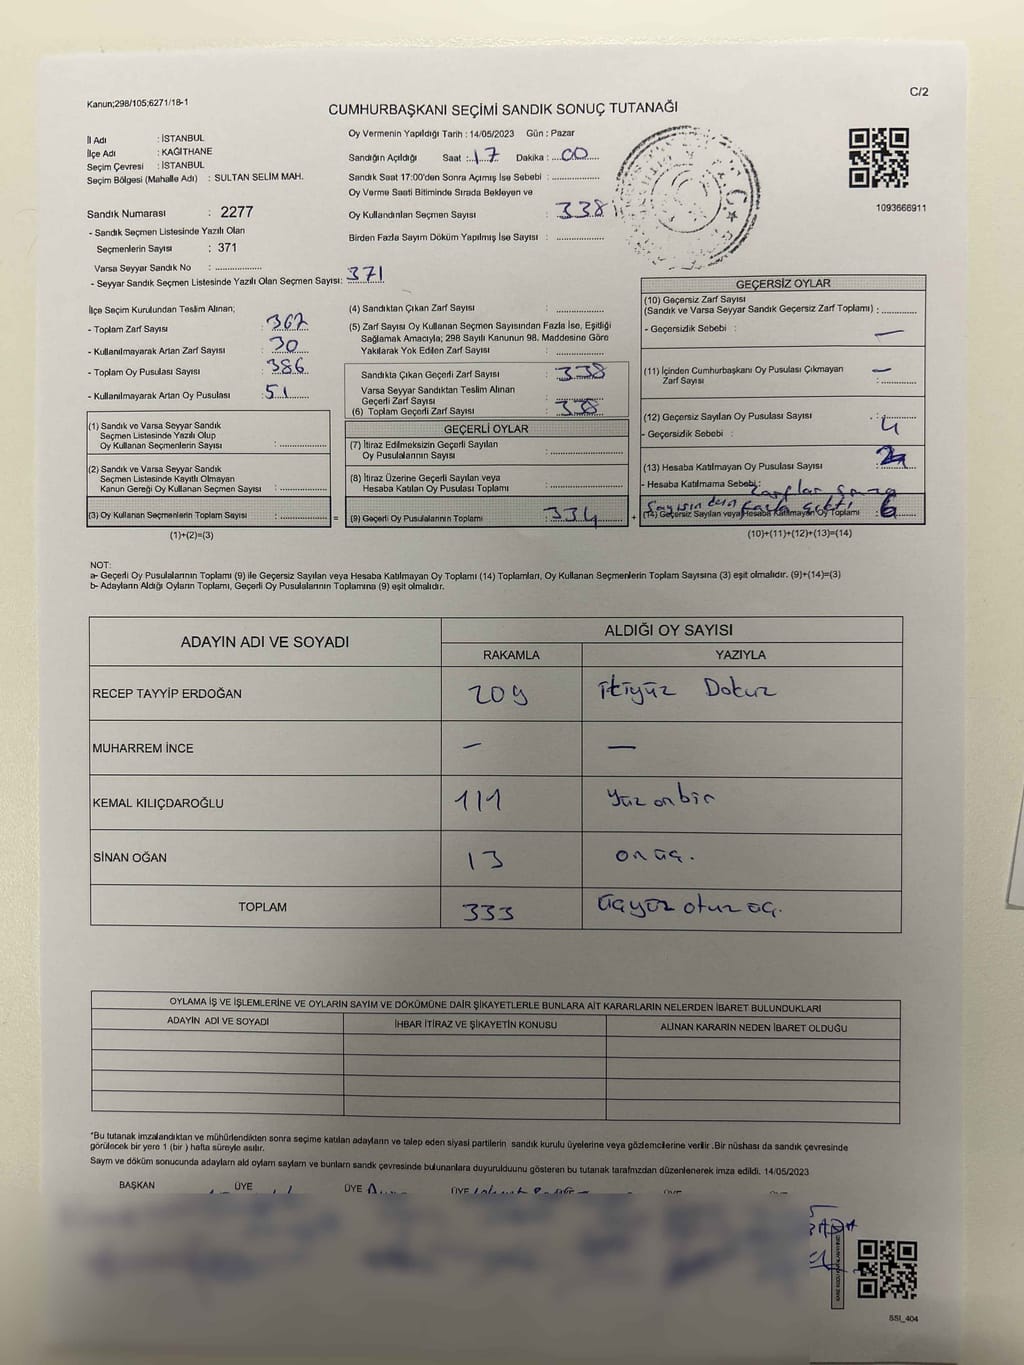 Kanun;298/105;6271/18-1
C/2
CUMHURBAŞKANI SEÇİMİ SANDIK SONUÇ TUTANAĞI
İl Adı : İSTANBUL
İlçe Adı : KAĞITHANE
Seçim Çevresi : İSTANBUL
Seçim Bölgesi (Mahalle Adı) : SULTAN SELİM MAH.
Sandık Numarası : 2277
- Sandık Seçmen Listesinde Yazılı Olan
Seçmenlerin Sayısı : 371
Varsa Seyyar Sandık No : ..................
- Seyyar Sandık Seçmen Listesinde Yazılı Olan Seçmen Sayısı: 371
Oy Vermenin Yapıldığı Tarih : 14/05/2023 Gün : Pazar
Sandığın Açıldığı Saat : 17 Dakika : 00
Sandık Saat 17:00'den Sonra Açımış İse Sebebi : ..................
Oy Verme Saati Bitiminde Sırada Bekleyen ve
Oy Kullandırılan Seçmen Sayısı : 338
Birden Fazla Sayım Döküm Yapılmış İse Sayısı : ..................
1093666911
İlçe Seçim Kurulundan Teslim Alınan;
- Toplam Zarf Sayısı : 367
- Kullanılmayarak Artan Zarf Sayısı : 30
- Toplam Oy Pusulası Sayısı : 386
- Kullanılmayarak Artan Oy Pusulası : 51
(1) Sandık ve Varsa Seyyar Sandık
Seçmen Listesinde Yazılı Olup
Oy Kullanan Seçmenlerin Sayısı : ..................
(2) Sandık ve Varsa Seyyar Sandık
Seçmen Listesinde Kayıtlı Olmayan
Kanun Gereği Oy Kullanan Seçmen Sayısı : ..................
(3) Oy Kullanan Seçmenlerin Toplam Sayısı : ..................
(1)+(2)=(3)
(4) Sandıktan Çıkan Zarf Sayısı : ..................
(5) Zarf Sayısı Oy Kullanan Seçmen Sayısından Fazla İse, Eşitliği
Sağlamak Amacıyla; 298 Sayılı Kanunun 98. Maddesine Göre
Yakılarak Yok Edilen Zarf Sayısı : ..................
Sandıkta Çıkan Geçerli Zarf Sayısı : 338
Varsa Seyyar Sandıktan Teslim Alınan
Geçerli Zarf Sayısı : ..................
(6) Toplam Geçerli Zarf Sayısı : 338
GEÇERLİ OYLAR
(7) İtiraz Edilmeksizin Geçerli Sayılan
Oy Pusulalarının Sayısı : ..................
(8) İtiraz Üzerine Geçerli Sayılan veya
Hesaba Katılan Oy Pusulası Toplamı : ..................
= (9) Geçerli Oy Pusulalarının Toplamı : 334 +
GEÇERSİZ OYLAR
(10) Geçersiz Zarf Sayısı
(Sandık ve Varsa Seyyar Sandık Geçersiz Zarf Toplamı) : ............
- Geçersizlik Sebebi : —
(11) İçinden Cumhurbaşkanı Oy Pusulası Çıkmayan —
Zarf Sayısı : ............
(12) Geçersiz Sayılan Oy Pusulası Sayısı : 4
- Geçersizlik Sebebi :
(13) Hesaba Katılmayan Oy Pusulası Sayısı
- Hesaba Katılmama Sebebi: zarflar
Sayısından fazla çıktı
(14) Geçersiz Sayılan veya Hesaba Katılmayan Oy Toplamı : 6
(10)+(11)+(12)+(13)=(14)
NOT:
a- Geçerli Oy Pusulalarının Toplamı (9) ile Geçersiz Sayılan veya Hesaba Katılmayan Oy Toplamı (14) Toplamları, Oy Kullanan Seçmenlerin Toplam Sayısına (3) eşit olmalıdır. (9)+(14)=(3)
b- Adayların Aldığı Oyların Toplamı, Geçerli Oy Pusulalarının Toplamına (9) eşit olmalıdır.
ADAYIN ADI VE SOYADI
ALDIĞI OY SAYISI
RAKAMLA YAZIYLA
RECEP TAYYİP ERDOĞAN 209 ikiyüz Dokuz
MUHARREM İNCE — —
KEMAL KILIÇDAROĞLU 111 Yüz onbir
SİNAN OĞAN 13 on üç.
TOPLAM 333 üçyüz otuz üç.
OYLAMA İŞ VE İŞLEMLERİNE VE OYLARIN SAYIM VE DÖKÜMÜNE DAİR ŞİKAYETLERLE BUNLARA AİT KARARLARIN NELERDEN İBARET BULUNDUKLARI
ADAYIN ADI VE SOYADI İHBAR İTİRAZ VE ŞİKAYETİN KONUSU ALINAN KARARIN NEDEN İBARET OLDUĞU
*Bu tutanak imzalandıktan ve mühürlendikten sonra seçime katılan adayların ve talep eden siyasi partilerin sandık kurulu üyelerine veya gözlemcilerine verilir .Bir nüshası da sandık çevresinde
görülecek bir yere 1 (bir ) hafta süreyle asılır.
Sayım ve döküm sonucunda adayların ald oyların sayların ve bunların sandık çevresinde bulunanlara duyurulduunu gösteren bu tutanak tarafmzdan düzenlenerek imza edildi. 14/05/2023
BAŞKAN ÜYE ÜYE ÜYE
SSI_404